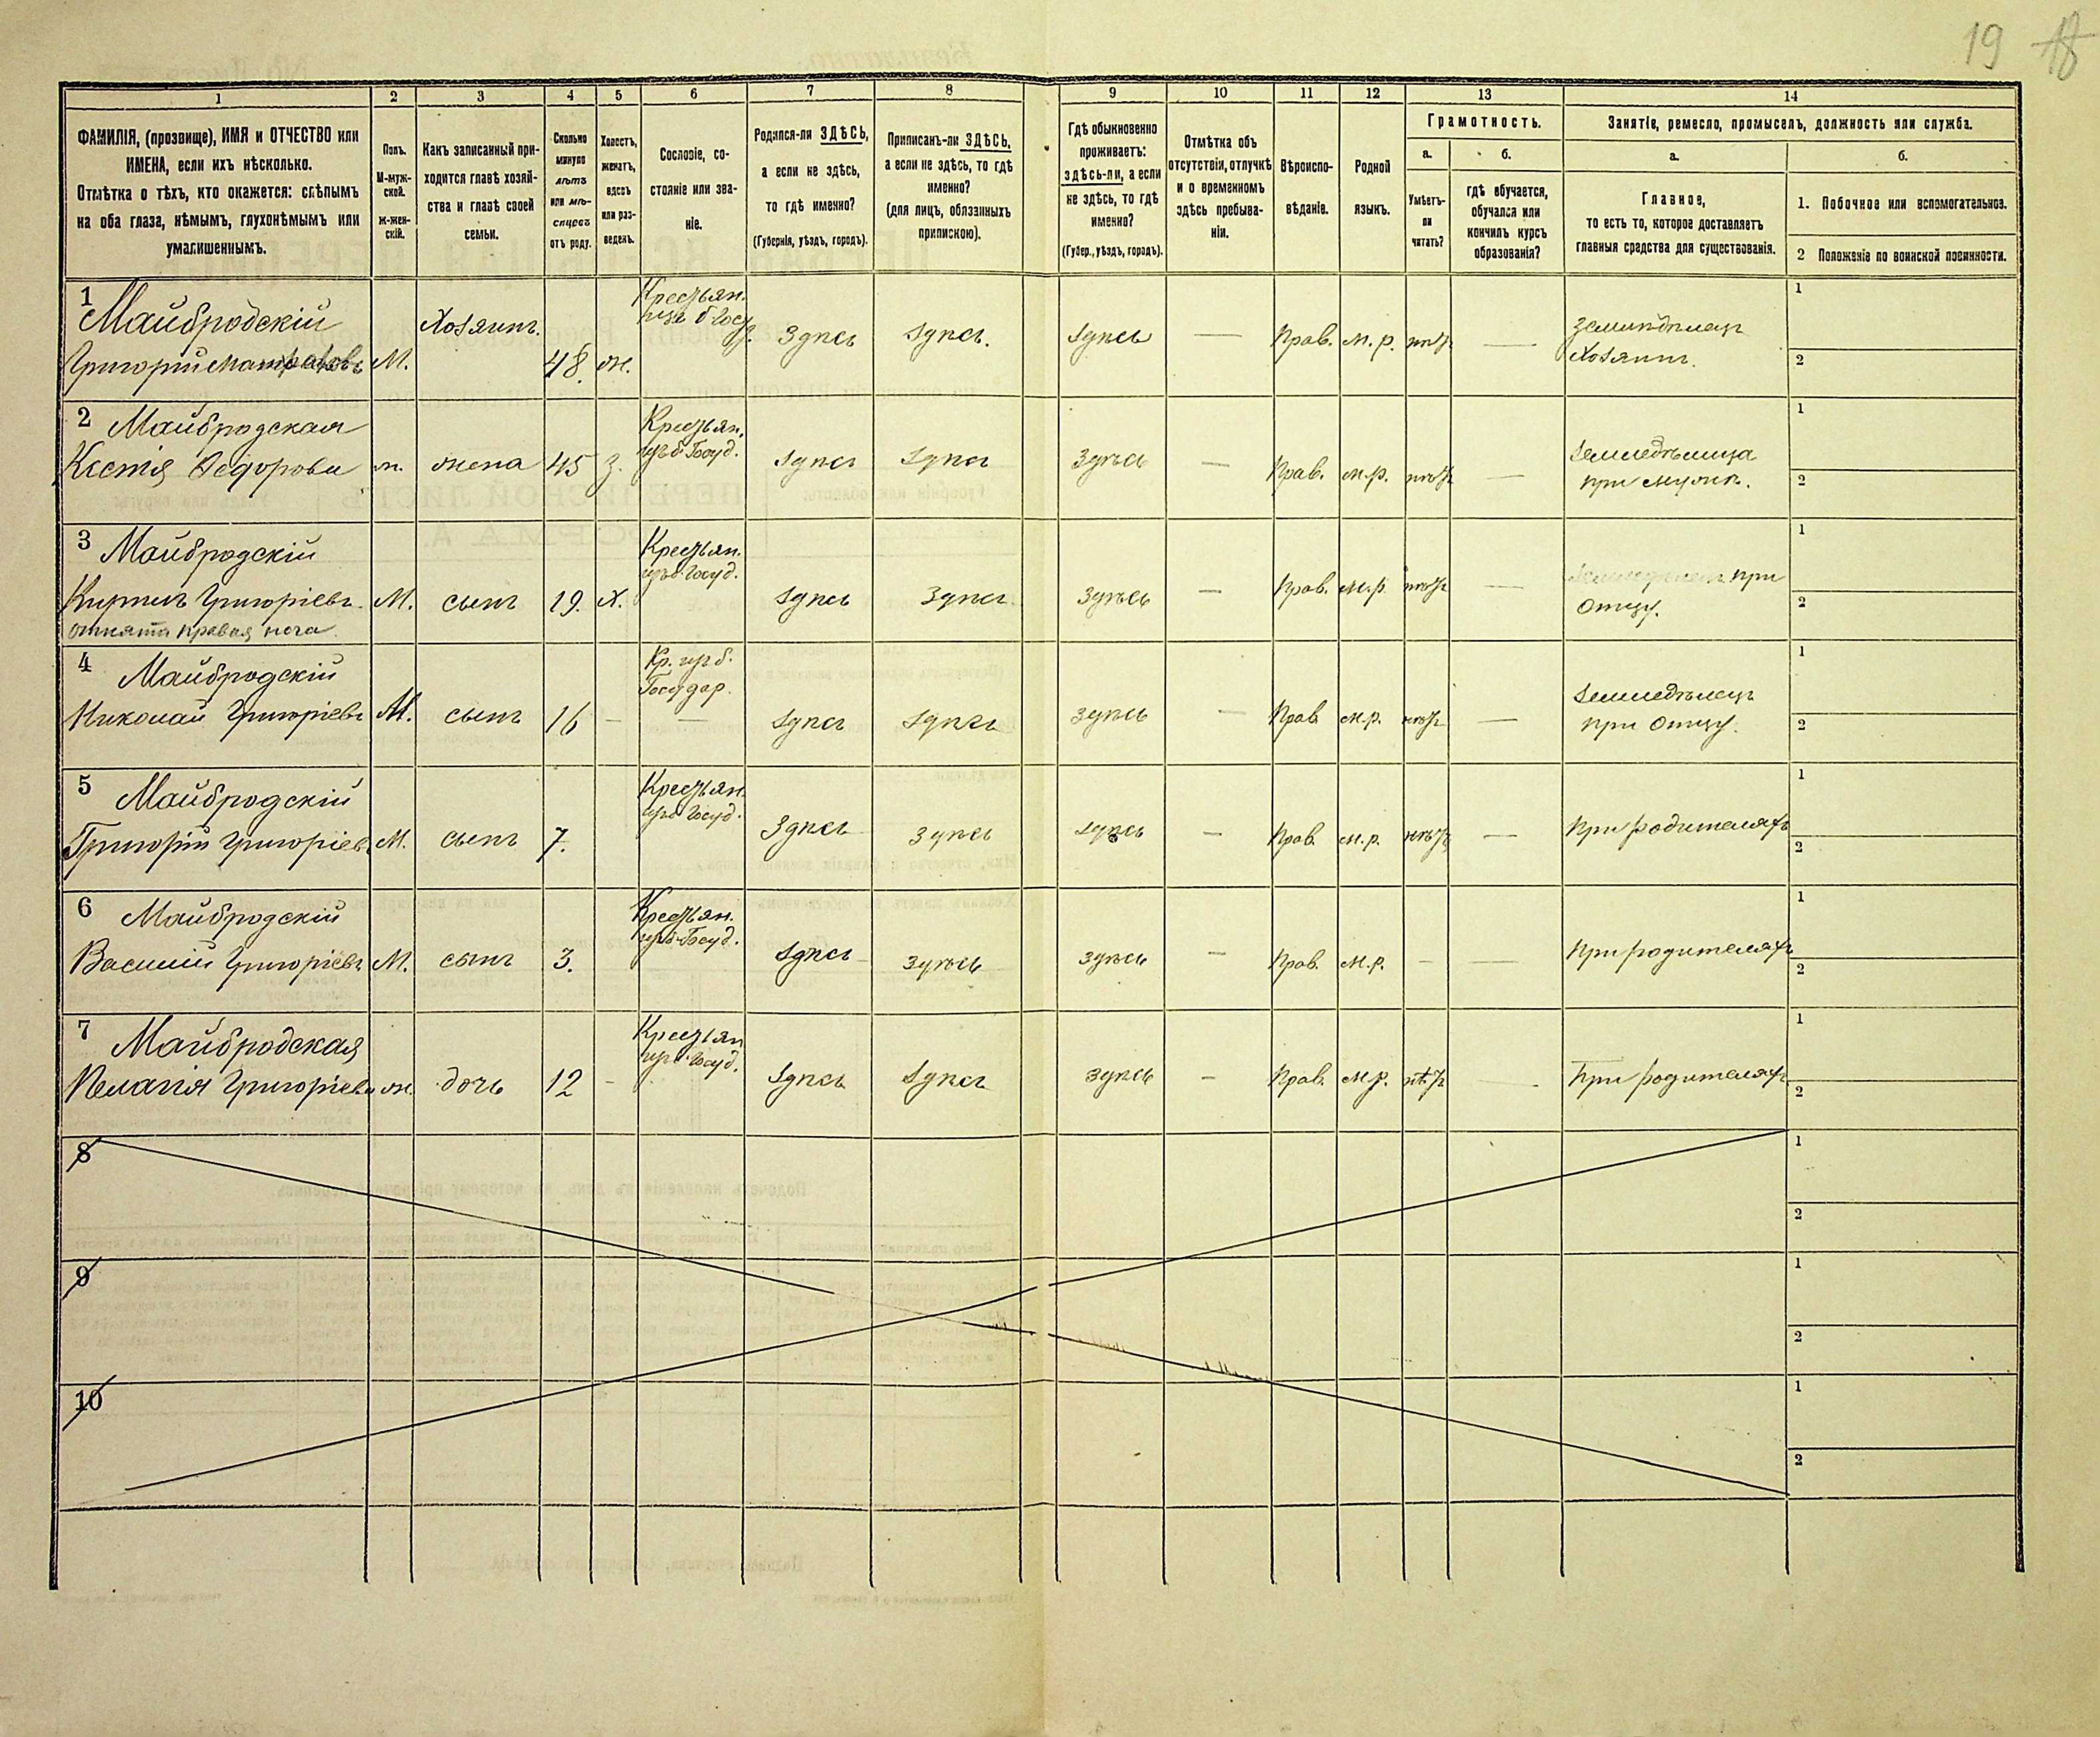 19 18
1 2 3 4 5 6 7 8 9 10 11 12 13 14
ФАМИЛІЯ, (прозвище), ИМЯ и ОТЧЕСТВО или
ИМЕНА, если ихъ нѣсколько.
Отмѣтка о тѣхъ, кто окажется: слѣпымъ
на оба глаза, нѣмымъ, глухонѣмымъ или
умалишеннымъ.
Полъ.
М-муж-
ской.
Ж-жен-
скій.
Какъ записанный при-
ходится главѣ хозяй-
ства и главѣ своей
семьи.
Сколько
минуло
лѣтъ
или мѣ-
сяцевъ
отъ роду.
Холостъ,
женатъ,
вдовъ
или раз-
веденъ.
Сословіе, со-
стояніе или зва-
ніе.
Родился-ли ЗДѢСЬ,
а если не здѣсь,
то гдѣ именно?
(Губернія, уѣздъ, городъ).
Приписанъ-ли ЗДѢСЬ,
а если не здѣсь, то гдѣ
именно?
(для лицъ, обязанныхъ
припискою).
Гдѣ обыкновенно
проживаетъ:
здѣсь-ли, а если
не здѣсь, то гдѣ
именно?
(Губер., уѣздъ, городъ).
Отмѣтка объ
отсутствіи, отлучкѣ
и о временномъ
здѣсь пребыва-
ніи.
Вѣроиспо-
вѣданіе.
Родной
языкъ.
Грамотность.
а.
Умѣетъ-
ли
читать?
б.
гдѣ обучается,
обучался или
кончилъ курсъ
образованія?
Занятіе, ремесло, промыселъ, должность или служба.
а.
Главное,
то есть то, которое доставляетъ
главныя средства для существованія.
б.
1. Побочное или вспомогательное.
2 Положеніе по воинской повинности.
1 Майбродскій
Григорій
М.
Хозяинъ.
48. ж.
Крестьян.
Здѣсь Здѣсь. Здѣсь — Прав. м. р. нѣтъ —
Земледѣлецъ
Хозяинъ.
1
2
2 Майбродская
Ксенія Ѳедорова
ж. жена 45 з.
Крестьян.
Госуд.
Здѣсь Здѣсь Здѣсь — Прав. м.р. нѣтъ —
Земледѣлица
при мужѣ.
1
2
3 Майбродскій
Кирилъ Григоріевъ
отнята правая нога
М. сынъ 19. Х.
Крестьян.
Госуд.
Здѣсь Здѣсь Здѣсь — Прав. м.р. нѣтъ —
Земледѣлецъ при
Отцу.
1
2
4 Майбродскій
Николай Григоріевъ
М. сынъ 16 —
Кр. изъ б.
Государ.
—
Здѣсь Здѣсь Здѣсь — Прав м.р. нѣтъ —
Земледѣлецъ
при Отцу.
1
2
5 Майбродскій
Григорій Григоріев
М. сынъ 7.
Крестьян.
Госуд.
Здѣсь Здѣсь Здѣсь — Прав. м.р. нѣтъ —
При родителяхъ
1
2
6 Майбродскій
Василій Григоріевъ
М. сынъ 3.
Крестьян.
Госуд.
Здѣсь Здѣсь Здѣсь — Прав. м.р. — —
При родителяхъ
1
2
7 Майбродская
Пелагія Григоріева
ж. дочь 12 —
Крестьян
Госуд.
Здѣсь Здѣсь Здѣсь — Прав. м.р. нѣтъ —
При родителяхъ
1
2
8
1
2
9
1
2
10
1
2